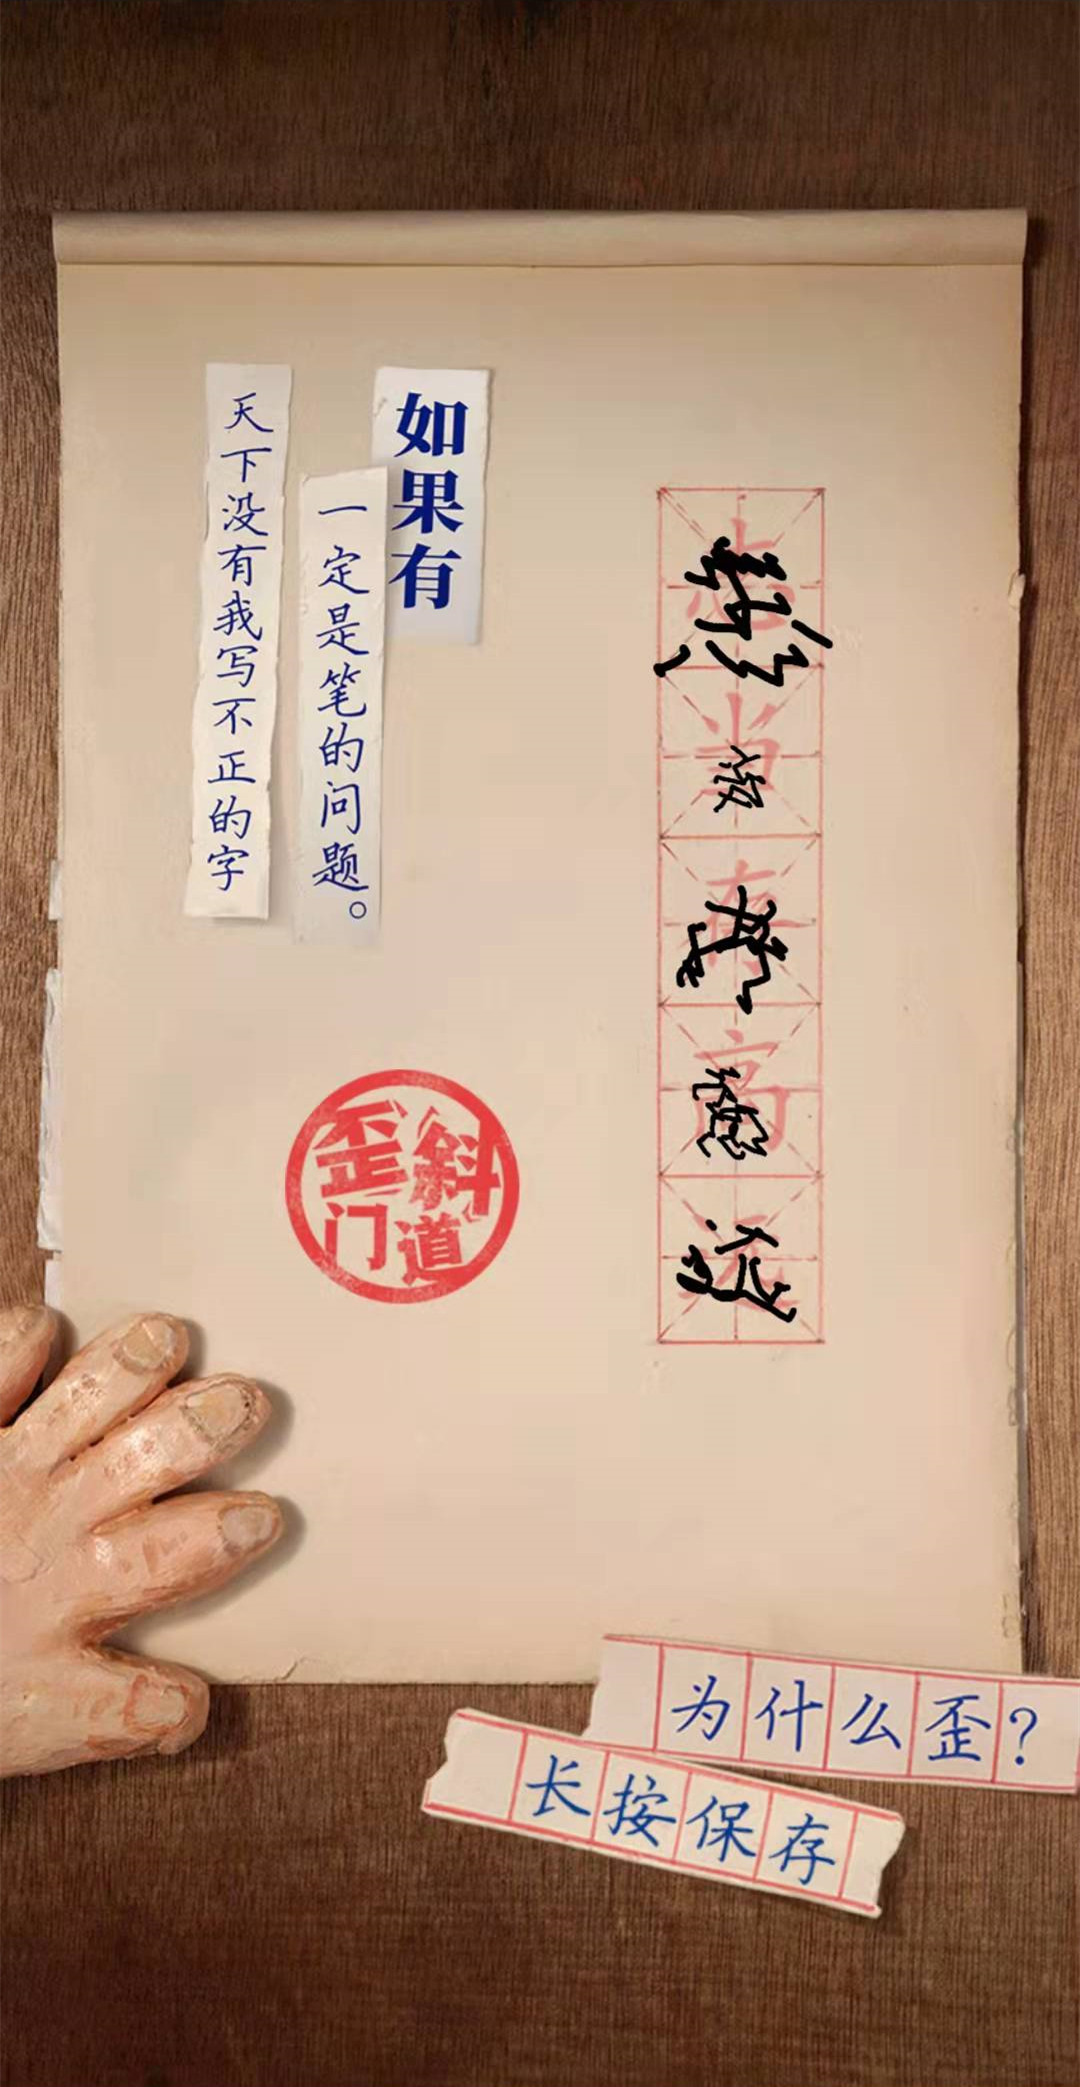 如果有
一定是笔的问题。
天下没有我写不正的字
志当存高远
歪斜
门道
为什么歪？
长按保存